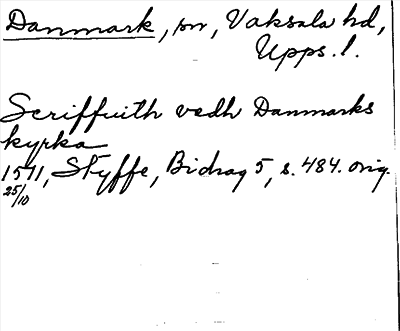 Danmark, sn, Vaksala hd,
Upps. l.
Scriffuith vedh Danmarks
kyrka
1571, Styffe, Bidrag 5, s. 484. orig.
25/10